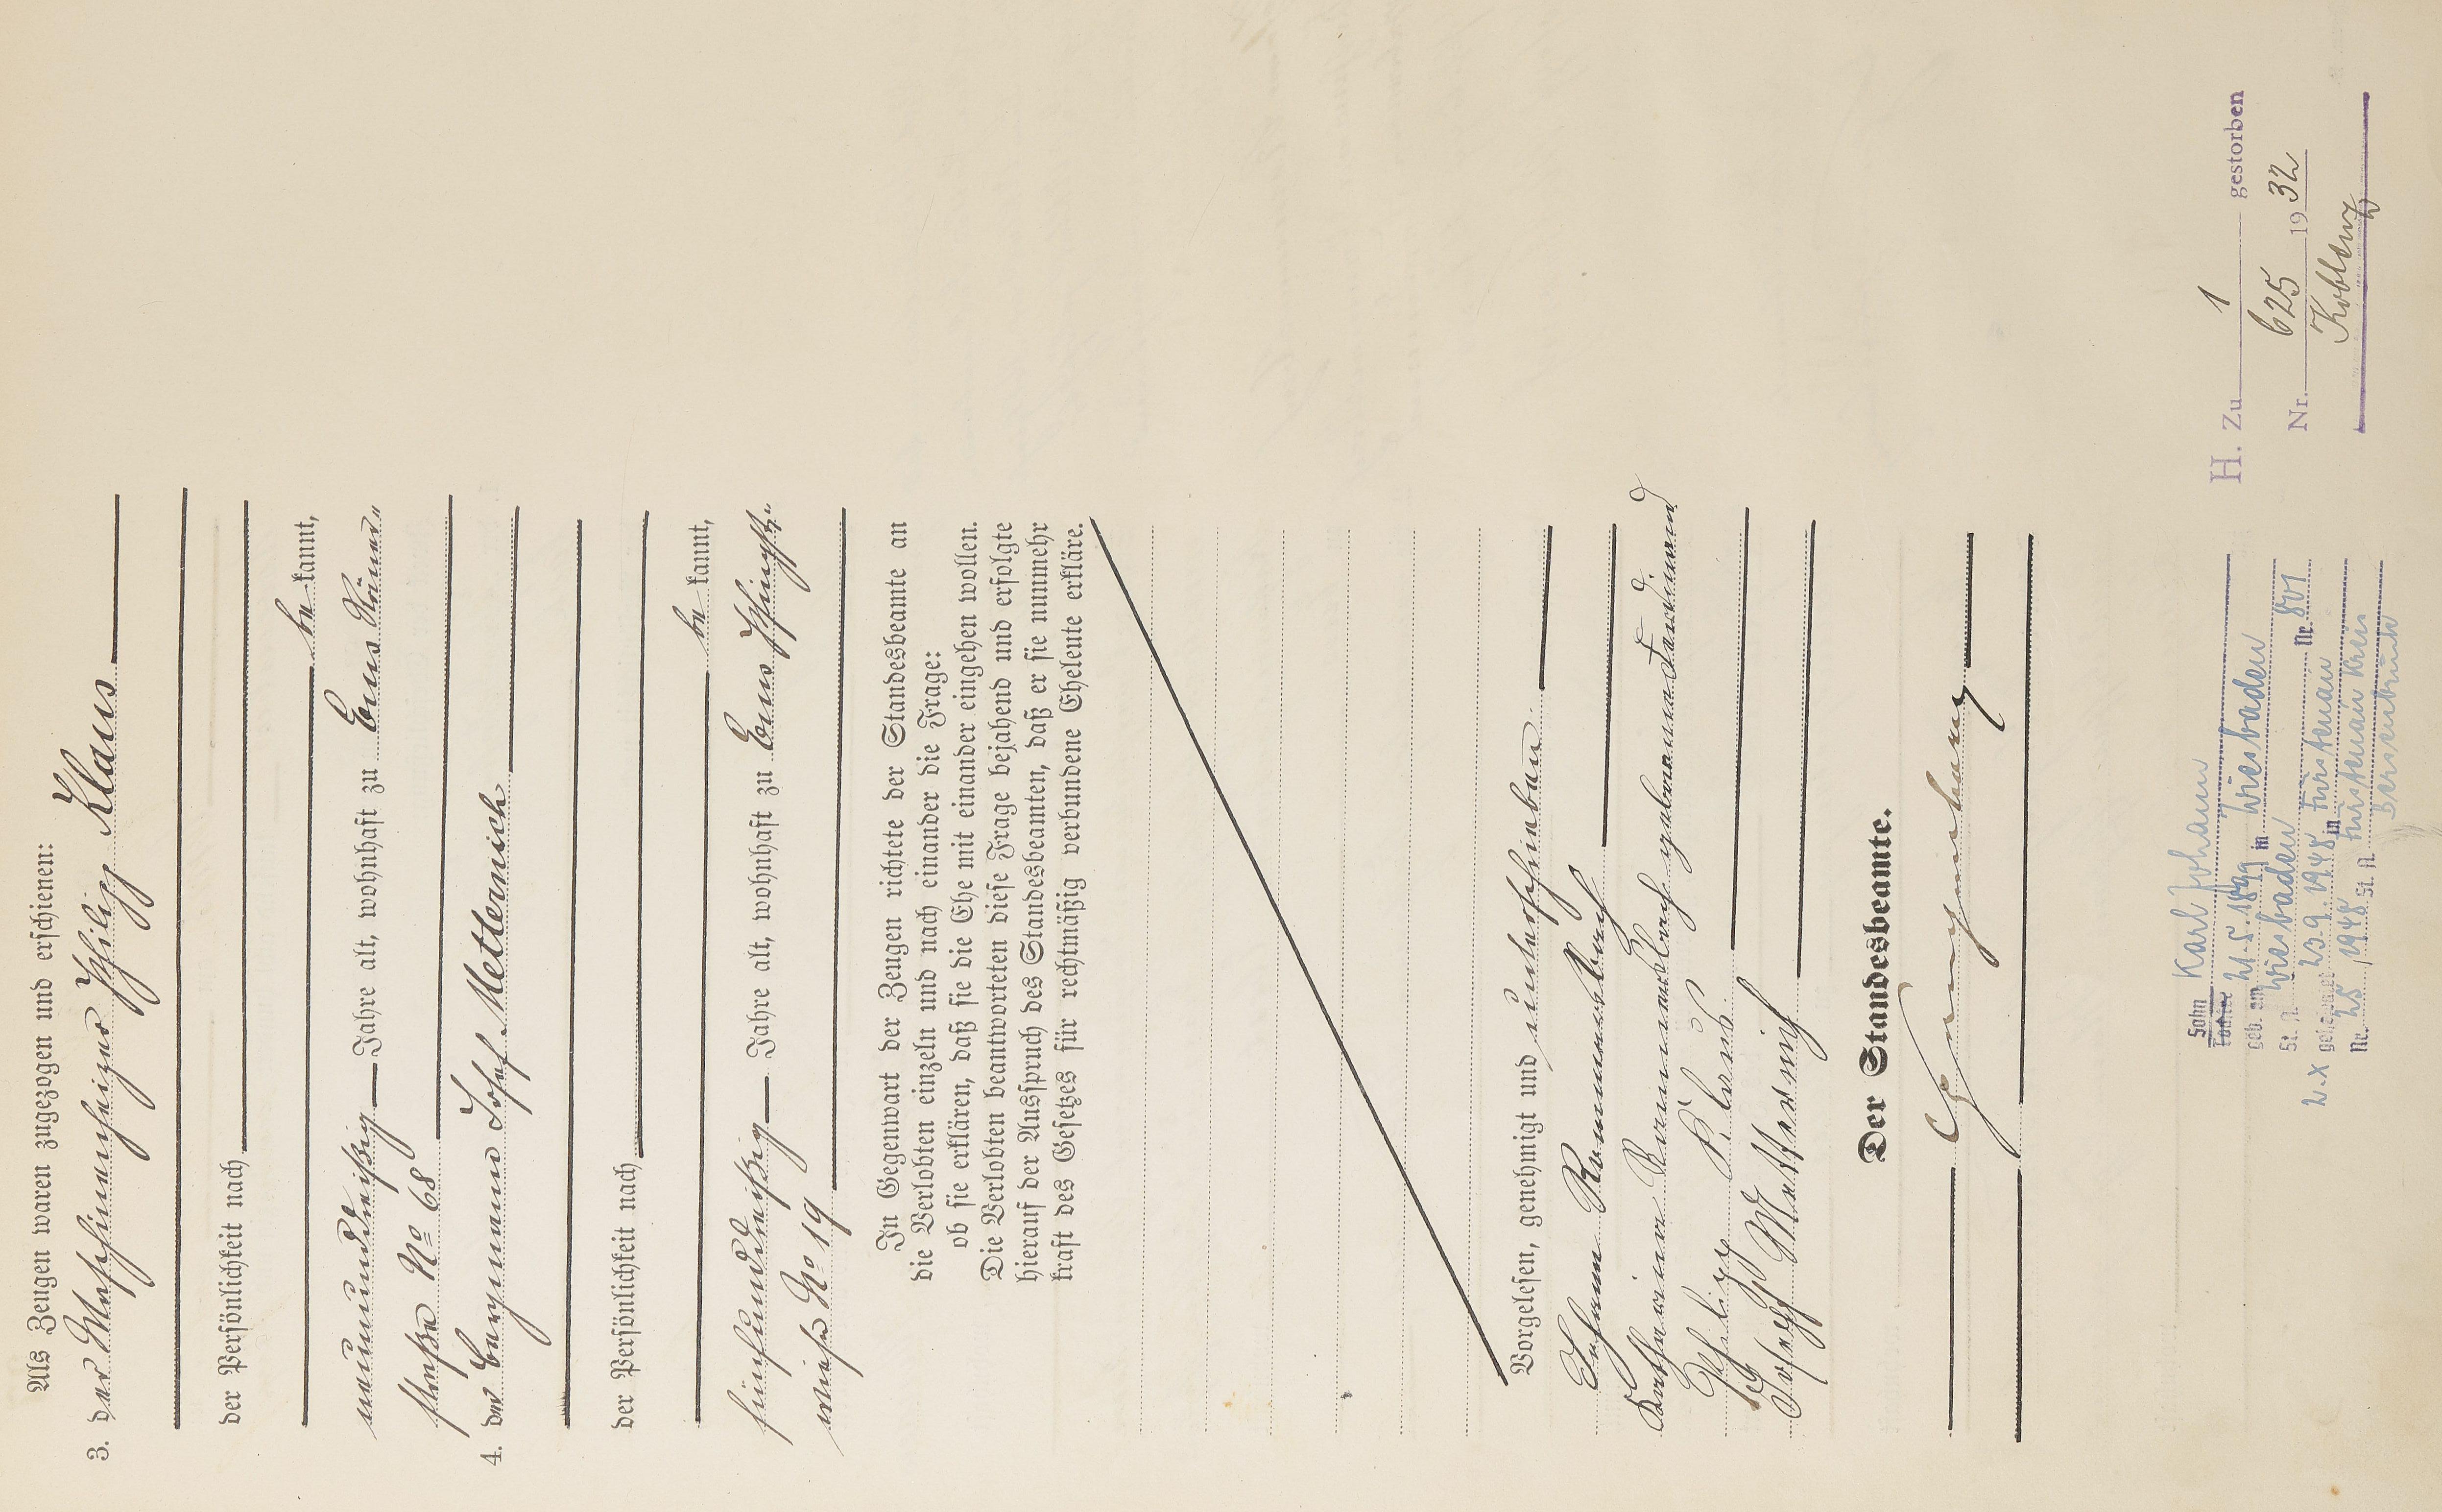 Als Zeugen waren zugezogen und erschienen:
3. der Maschinenheizer Philipp Klaus
der Persönlichkeit nach
be kannt,
neununddreißig Jahre alt, wohnhaft zu Ems Römer-
straße No 68
4. der Bergmann Josef Metternich
der Persönlichkeit nach
be kannt,
fünfunddreißig Jahre alt, wohnhaft zu Ems Pfingst-
wiese No 19
In Gegenwart der Zeugen richtete der Standesbeamte an
die Verlobten einzeln und nach einander die Frage:
ob sie erklären, daß sie die Ehe mit einander eingehen wollen.
Die Verlobten beantworteten diese Frage bejahend und erfolgte
hierauf der Ausspruch des Standesbeamten, daß er sie nunmehr
kraft des Gesetzes für rechtmäßig verbundene Eheleute erkläre.
Vorgelesen, genehmigt und unterschrieben
Johann
Katharina geborene Ferdinand
Philipp Klaus
Joseph Metternich
Der Standesbeamte.
Sohn Karl Johann
Tochter
geb. am 21.5.1899 in Wiesbaden
St. A. Wiesbaden Nr. 801
2. X geheiratet 23.9.1948 in Fürstenau
Nr. 25, 1948 St. A. Fürstenau Kreis
Bersenbrück
H. Zu 1 gestorben
Nr. 625 1932
Koblenz